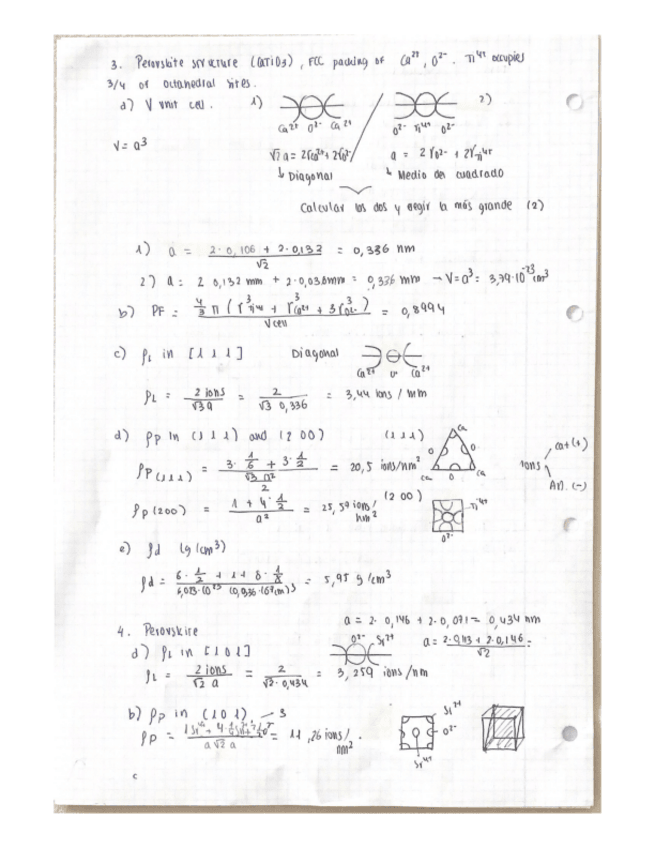 3. Perovskite structure (CaTiO3), FCC packing of Ca²⁺, O²⁻. Ti⁴⁺ occupies
3/4 of octahedral sites.
a) V unit cell. 1) 2)
Ca²⁺ O²⁻ Ca²⁺ O²⁻ Ti⁴⁺ O²⁻
V = a³
√2 a = 2rCa²⁺ + 2rO²⁻ a = 2 rO²⁻ + 2rTi⁴⁺
↳ Diagonal ↳ Medio del cuadrado
Calcular los dos y elegir la más grande (2)
1) a = (2·0,106 + 2·0,132)/√2 = 0,336 nm
2) a = 2 0,132 nm + 2·0,036nm = 0,336 nm → V=a³= 3,79·10⁻²³ cm³
b) PF = (4/3 π (r³Ti⁴⁺ + r³Ca²⁺ + 3r³O²⁻))/Vcell = 0,8994
c) ρL in [111] Diagonal
Ca²⁺ Ca²⁺
ρL = 2 ions/√3 a = 2/(√3 0,336) = 3,44 ions/nm
d) ρp in (111) and (200) (111)
ρp(111) = (3·1/6 + 3·1/2)/(√3 a²/2) = 20,5 ions/nm²
Ca O O Ca O Ca
ions cat (+) An. (-)
ρp(200) = (1 + 4·1/2)/a² = 25,59 ions/nm² (200)
Ti⁴⁺ O²⁻
e) ρd (g/cm³)
ρd = = 5,95 g/cm³
a = 2·0,146 + 2·0,071 = 0,434 nm
4. Perovskite
a) ρL in [101] O²⁻ Sr²⁺
ρL = 2 ions/√2 a = 2/(√2·0,434) = 3,259 ions/nm
b) ρp in (101) — 3
ρp = = 11,26 ions/nm².
Sr²⁺ O²⁻
c